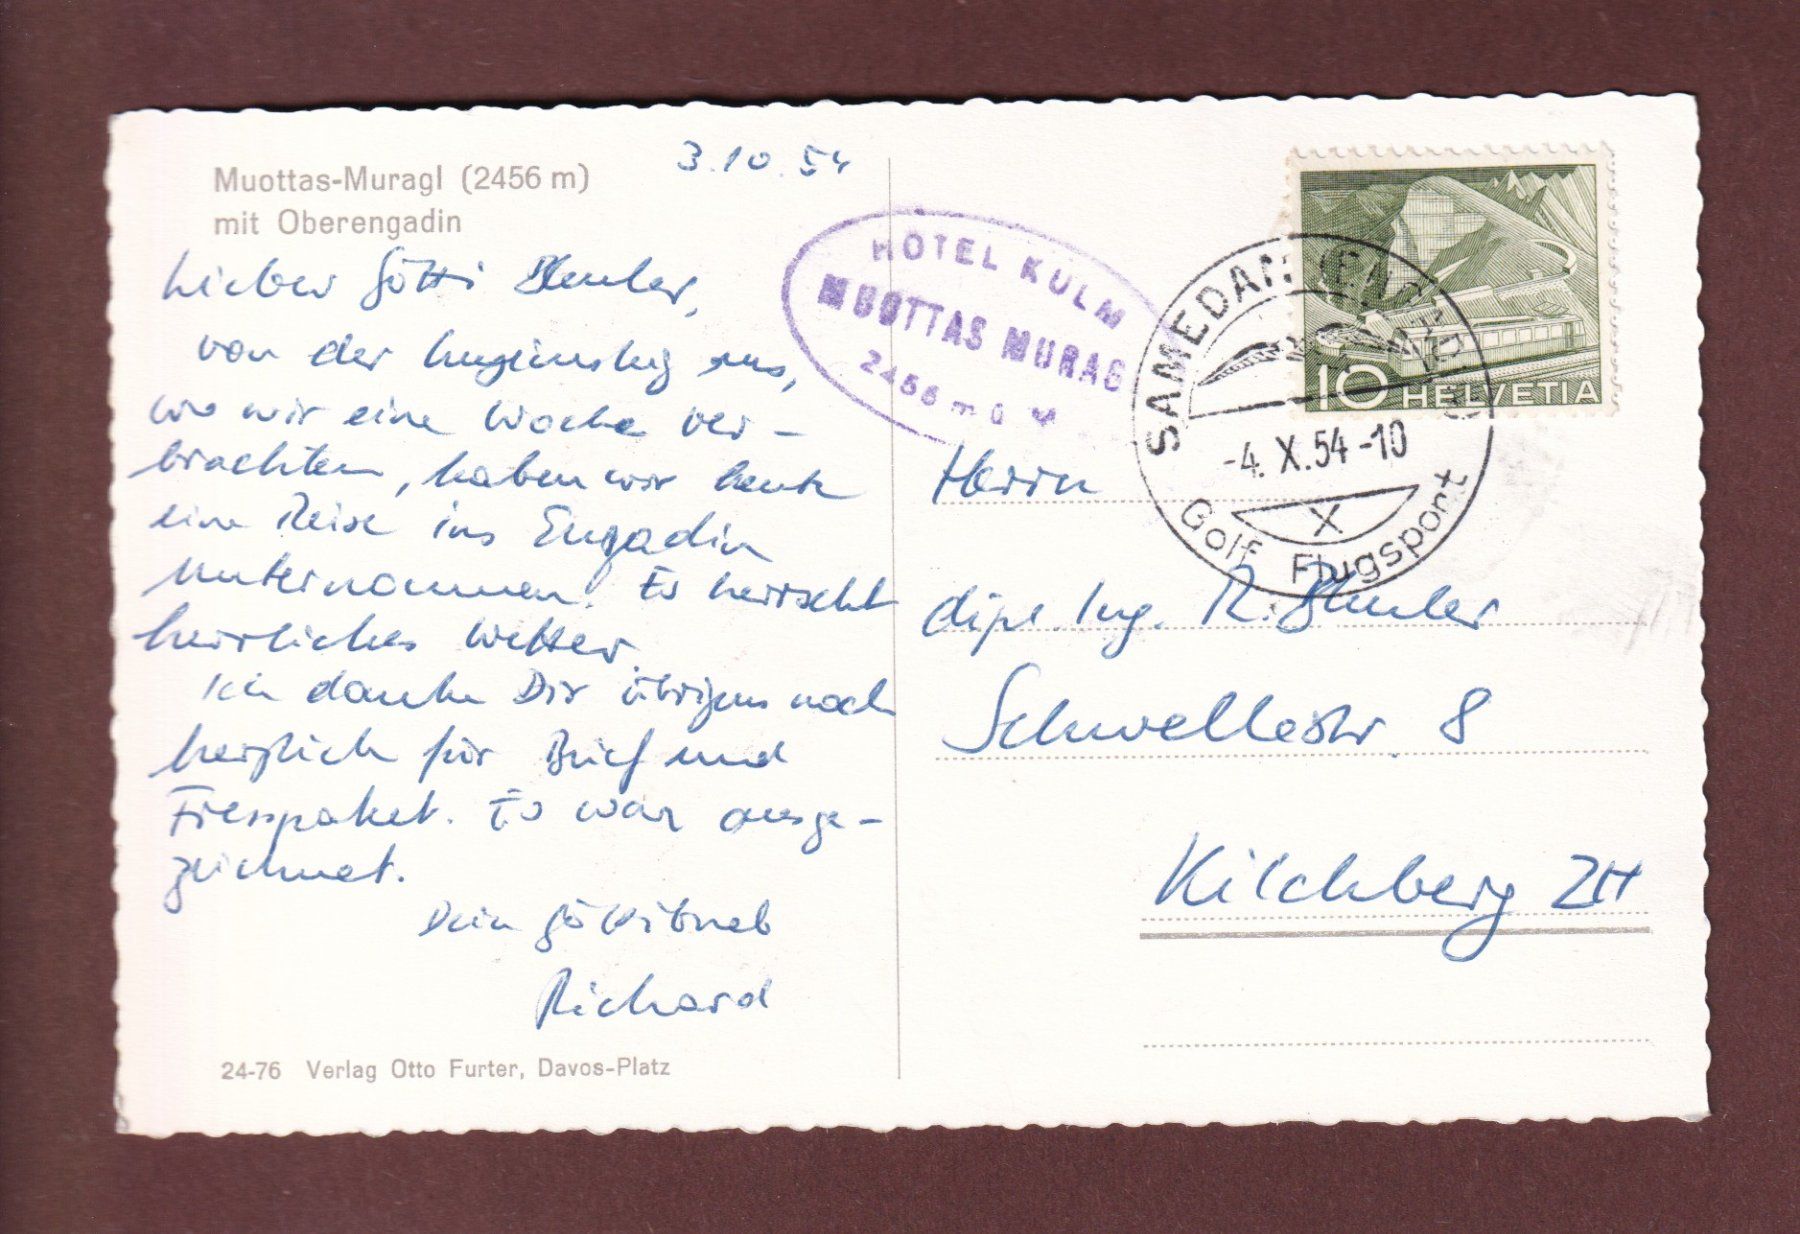 Muottas-Muragl (2456 m)
mit Oberengadin
3.10.54
Lieber Götti Bleuler,
von der aus,
wo wir eine Woche ver-
brachten, haben wir heute
eine Reise ins Engadin
unternommen. Es herrscht
herrliches Wetter.
Ich danke Dir übrigens noch
herzlich für Brief und
Fresspaket. Es war ausge-
zeichnet.
Dein Göttibueb
Richard
24-76 Verlag Otto Furter, Davos-Platz
HOTEL KULM
MUOTTAS MURAG
2456 m ü M
SAMEDAN (ENGADIN)
-4. X. 54 -10
Golf Flugsport
10 HELVETIA
Herrn
dipl. Ing. R. Bleuler
Schwellestr. 8
Kilchberg ZH